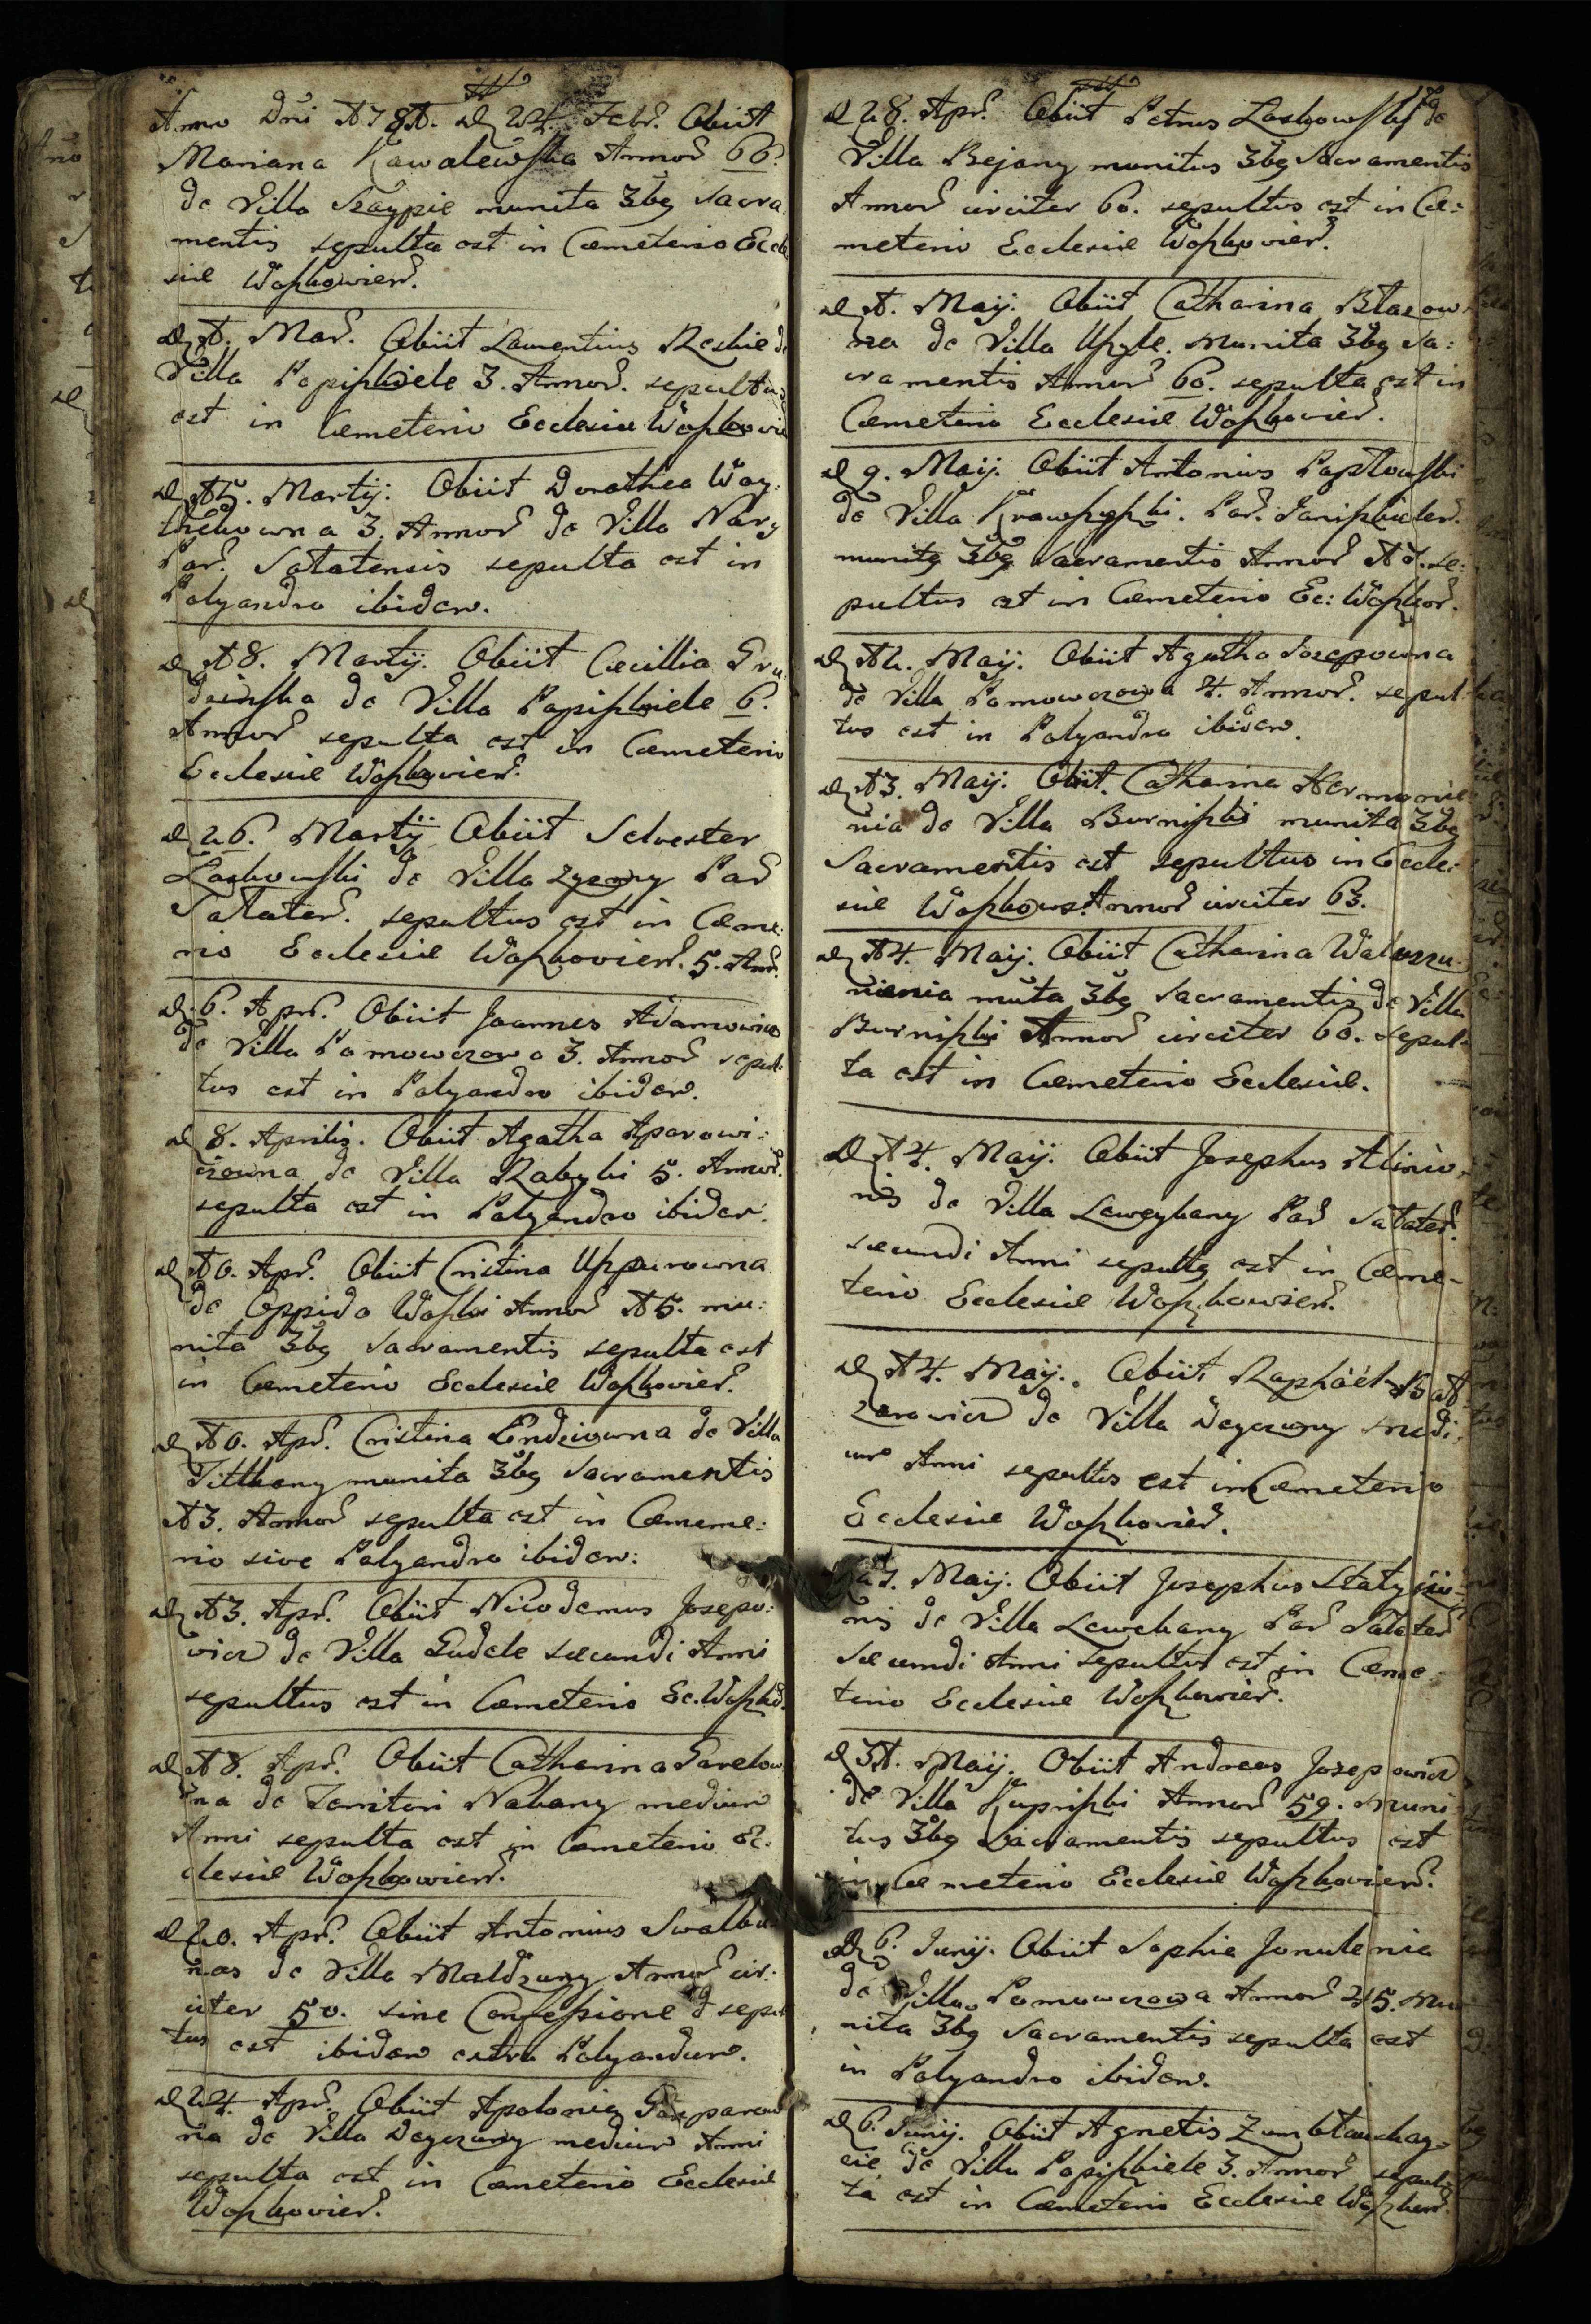 Anno Dni 1781. D 24. Febr. Obiit
Mariana Kawalewska Annor 66.
de Villa Szaypie munita 3bq Sacra
mentis sepulta est in Cæmeterio Eccle
siæ Waszkowien.
D 1. Mar. Obiit Laurentius Reskie de
Villa Popiszkiele 3. Annor. sepultus
est in Cæmeterio Ecclesiæ Waszkowie
D 15. Martij. Obiit Dorothea Way
3. Annor de Villa Nary
Par. Satatensis sepulta est in
Polyandro ibidem.
D 18. Martij. Obiit Cæcillia Gru
dzinska de Villa Popiszkiele 6.
Annor sepulta est in Cæmeterio
Ecclesiæ Waszkowien.
D 26. Martij Obiit Selvester
Laskowski de Villa Par
Sataten. sepultus est in Cæme:
rio Ecclesiæ Waszkovien. 5. Ann.
D. 6. Apr. Obiit Joannes Adamowicz
de Villa Pomowczowa 3. Annor sepul:
tus est in Polyandro ibidem.
D 8. Aprilis. Obiit Agatha Aparowi:
czowna de Villa Rabyki 5. Annor.
sepulta est in Polyandro ibidem.
D 10. Apr. Obiit Cristina
de Oppido Waszki Annor 15. mu:
nita 3bq Sacramentis sepulta est
in Cæmeterio Ecclesiæ Waszkovien.
D 10. Apr. Cristina Endziowna de Villa
Titkany munita 3bq Sacramentis
13. Annor sepulta est in Cæmeme:
rio sive Polyandro ibidem:
D 13. Apr. Obiit Nicodemus Josepo:
vicz de Villa Gudele secundi Anni
sepultus est in Cæmeterio Ec. Waszko.
D 18. Apr. Obiit Catharina Garelow
na de Territori Nakany medium
Anni sepulta est in Cæmeterio Ec:
clesiæ Waszkowien.
D 20. Apr. Obiit Antonius Swalku
nas de Villa Maldzuny Annor cir:
citer 50. sine Confessione & sepul
tus est ibidem extra Polyandum.
D 24. Apr. Obiit Apolonia Gasparow
na de Villa Degczuny medium Anni
sepulta est in Cæmeterio Ecclesiæ
Waszkovien.
D 28. Apr. Obiit Petrus Laskowski de
Villa Bejany munitus 3bq Sacramentis
Annor circiter 60. sepultus est in Cæ:
meterio Ecclesiæ Waszkovien.
D 1. Maij. Obiit Catharina Blazow
na de Villa Upyle. Munita 3bq Sa:
cramentis Annor 60. sepulta est in
Cæmeterio Ecclesiæ Waszkovien.
D 9. Maij. Obiit Antonius
de Villa Par. Janiszkielen.
munitq 3bq Sacramentis Annor 17. se:
pultus est in Cæmeterio Ec: Waszkov.
D 12. Maij. Obiit Agatha Josepowna
de Villa Pomowczowa 4. Annor. sepul
tus est in Polyandro ibidem.
D 13. Maij. Obiit. Catharina
nia de Villa Burniszki munita 3bq
Sacramentis est sepultus in Eccle:
siæ Waszkows. Annor circiter 63.
D 14. Maij. Obiit Catharina
munta 3bq Sacramentis de Villa
Burniszki Annor circiter 60. Sepul:
ta est in Cæmeterio Ecclesiæ.
D 14. Maij. Obiit Josephus Alinio
nis de Villa Laweykany Par Sataten.
secundi Anni sepultq est in Cæme-
terio Ecclesiæ Waszkowien.
D 14. Maij. Obiit Raphaël
de Villa Degczuny medi
um Anni sepultus est in Cæmeterio
Ecclesiæ Waszkovien.
27. Maij. Obiit Josephus
nis de Villa Lawekany Par Sataten
secundi Anni sepultus est in Cæme-
terio Ecclesiæ Waszkowien.
D 31. Maij. Obiit Andreas Jozepowicz
de Villa Kupriszki Annor 59. Muni
tus 3bq Sacramentis sepultus est
in Cæmeterio Ecclesiæ Waszkovien.
D 6. Junij. Obiit Sophia Jonulenia
de Villa Pomowczowa Annor 25. Mu
nita 3bq Sacramentis sepulta est
in Polyandro ibidem.
D 6. Junij. Obiit Agnetis
de Villa Popiszkiele 3. Annor sepul
ta est in Cæmeterio Ecclesiæ Waszkow.